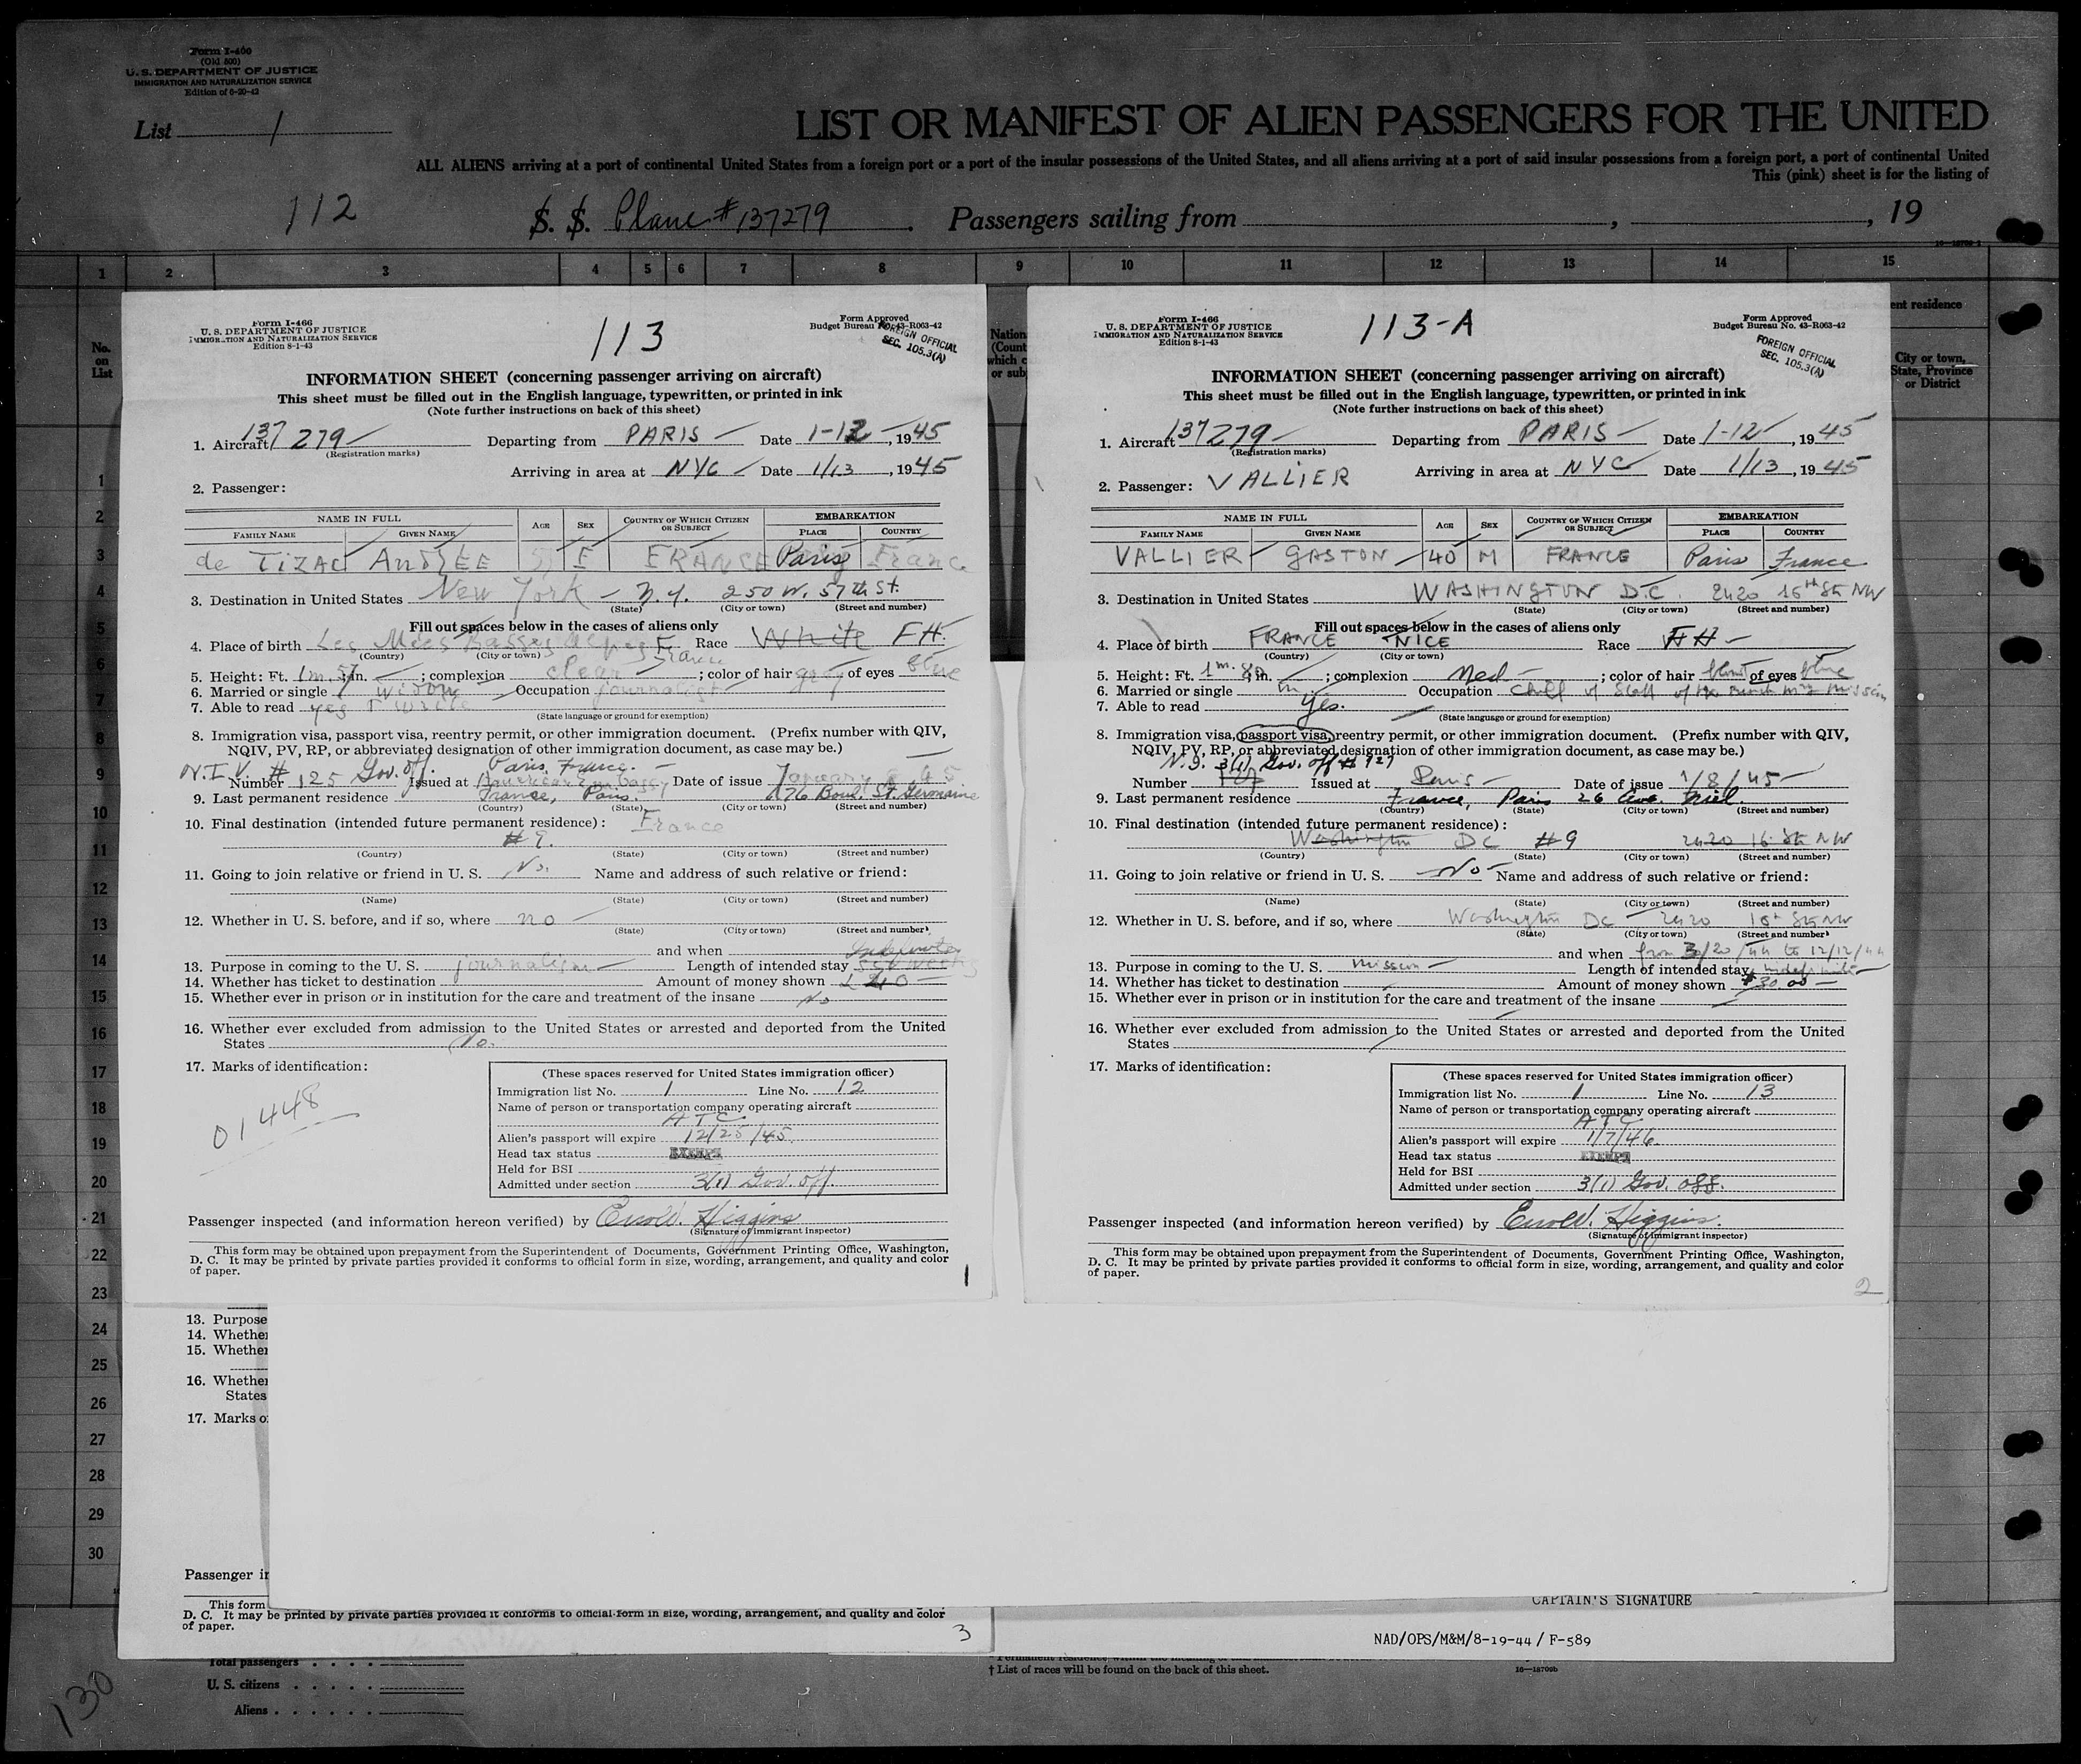 Form I-400
(Old 500)
U. S. DEPARTMENT OF JUSTICE
IMMIGRATION AND NATURALIZATION SERVICE
Edition of 6-20-42
List 1
LIST OR MANIFEST OF ALIEN PASSENGERS FOR THE UNITED
ALL ALIENS arriving at a port of continental United States from a foreign port or a port of the insular possessions of the United States, and all aliens arriving at a port of said insular possessions from a foreign port, a port of continental United
This (pink) sheet is for the listing of
112 S. S. Plane #137279 . Passengers sailing from , , 19
1 2 3 4 5 6 7 8 9 10 11 12 13 14 15
No. on List
Form I-466
U. S. DEPARTMENT OF JUSTICE
IMMIGRATION AND NATURALIZATION SERVICE
Edition 8-1-43
113
Form Approved
Budget Bureau No. 43-R063-42
FOREIGN OFFICIAL
SEC. 105.3(A)
INFORMATION SHEET (concerning passenger arriving on aircraft)
This sheet must be filled out in the English language, typewritten, or printed in ink
(Note further instructions on back of this sheet)
1. Aircraft 137279 Departing from PARIS Date 1-12, 1945
(Registration marks)
Arriving in area at NYC Date 1/13, 1945
2. Passenger:
NAME IN FULL AGE SEX COUNTRY OF WHICH CITIZEN OR SUBJECT EMBARKATION
FAMILY NAME GIVEN NAME PLACE COUNTRY
de TIZAC ANDRÉE F FRANCE Paris France
3. Destination in United States New York - N.Y. 250 W. 57th St.
(State) (City or town) (Street and number)
Fill out spaces below in the cases of aliens only
4. Place of birth Les Mées Basses Alpes France Race White FH.
(Country) (City or town)
5. Height: Ft. 1m. 57 in. ; complexion clear ; color of hair gray of eyes blue
6. Married or single widow Occupation journalist
7. Able to read yes + write
(State language or ground for exemption)
8. Immigration visa, passport visa, reentry permit, or other immigration document. (Prefix number with QIV,
NQIV, PV, RP, or abbreviated designation of other immigration document, as case may be.)
N.I.V. # Gov. off. Paris, France.
Number 125 Issued at American Embassy Date of issue January 45
9. Last permanent residence France, Paris. 276 Boul. St. Germaine
(Country) (State) (City or town) (Street and number)
10. Final destination (intended future permanent residence): France
#9.
(Country) (State) (City or town) (Street and number)
11. Going to join relative or friend in U. S. No. Name and address of such relative or friend:
(Name) (State) (City or town) (Street and number)
12. Whether in U. S. before, and if so, where no
(State) (City or town) (Street and number)
and when
13. Purpose in coming to the U. S. journalism Length of intended stay Indefinite
14. Whether has ticket to destination Amount of money shown 40
15. Whether ever in prison or in institution for the care and treatment of the insane No
16. Whether ever excluded from admission to the United States or arrested and deported from the United
States No.
17. Marks of identification:
01448
(These spaces reserved for United States immigration officer)
Immigration list No. 1 Line No. 12
Name of person or transportation company operating aircraft
ATC
Alien's passport will expire 12/25/45.
Head tax status EXEMPT
Held for BSI
Admitted under section 3(1) Gov. off.
Passenger inspected (and information hereon verified) by Errol W. Higgins
(Signature of immigrant inspector)
This form may be obtained upon prepayment from the Superintendent of Documents, Government Printing Office, Washington,
D. C. It may be printed by private parties provided it conforms to official form in size, wording, arrangement, and quality and color
of paper.
1
Form I-466
U. S. DEPARTMENT OF JUSTICE
IMMIGRATION AND NATURALIZATION SERVICE
Edition 8-1-43
113-A
Form Approved
Budget Bureau No. 43-R063-42
FOREIGN OFFICIAL
SEC. 105.3(A)
INFORMATION SHEET (concerning passenger arriving on aircraft)
This sheet must be filled out in the English language, typewritten, or printed in ink
(Note further instructions on back of this sheet)
1. Aircraft 137279 Departing from PARIS Date 1-12, 1945
(Registration marks)
Arriving in area at NYC Date 1/13, 1945
2. Passenger: VALLIER
NAME IN FULL AGE SEX COUNTRY OF WHICH CITIZEN OR SUBJECT EMBARKATION
FAMILY NAME GIVEN NAME PLACE COUNTRY
VALLIER GASTON 40 M FRANCE Paris France
3. Destination in United States WASHINGTON D.C. 2420 16th St NW
(State) (City or town) (Street and number)
Fill out spaces below in the cases of aliens only
4. Place of birth FRANCE NICE Race FH
(Country) (City or town)
5. Height: Ft. 1m. 80 in. ; complexion Med ; color of hair blond of eyes blue
6. Married or single m Occupation Chief of Staff of the French Mission
7. Able to read Yes.
(State language or ground for exemption)
8. Immigration visa, passport visa, reentry permit, or other immigration document. (Prefix number with QIV,
NQIV, PV, RP, or abbreviated designation of other immigration document, as case may be.)
N.I. 3(1) Gov. off # 127
Number 127 Issued at Paris Date of issue 1/8/45
9. Last permanent residence France, Paris 26 Ave. Niel.
(Country) (State) (City or town) (Street and number)
10. Final destination (intended future permanent residence):
Washington DC #9 2420 16 St NW
(Country) (State) (City or town) (Street and number)
11. Going to join relative or friend in U. S. No Name and address of such relative or friend:
(Name) (State) (City or town) (Street and number)
12. Whether in U. S. before, and if so, where Washington DC 2420 16th St NW
(State) (City or town) (Street and number)
and when from 3/20/44 to 12/12/44
13. Purpose in coming to the U. S. mission Length of intended stay indefinite
14. Whether has ticket to destination Amount of money shown $30.00
15. Whether ever in prison or in institution for the care and treatment of the insane
16. Whether ever excluded from admission to the United States or arrested and deported from the United
States
17. Marks of identification:
(These spaces reserved for United States immigration officer)
Immigration list No. 1 Line No. 13
Name of person or transportation company operating aircraft
ATC
Alien's passport will expire 1/7/46
Head tax status EXEMPT
Held for BSI
Admitted under section 3(1) Gov. off.
Passenger inspected (and information hereon verified) by Errol W. Higgins.
(Signature of immigrant inspector)
This form may be obtained upon prepayment from the Superintendent of Documents, Government Printing Office, Washington,
D. C. It may be printed by private parties provided it conforms to official form in size, wording, arrangement, and quality and color
of paper.
2
Nation
(Count
which c
or sub
ent residence
City or town,
State, Province
or District
1
2
3
4
5
6
7
8
9
10
11
12
13
14
15
16
17
18
19
20
21
22
23
24
25
26
27
28
29
30
13. Purpose
14. Whether
15. Whether
16. Whether
States
17. Marks o
Passenger in
This form
D. C. It may be printed by private parties provided it conforms to official form in size, wording, arrangement, and quality and color
of paper.
3
CAPTAIN'S SIGNATURE
NAD/OPS/M&M/8-19-44 / F-589
† List of races will be found on the back of this sheet.
16—18709b
Total passengers
U. S. citizens
Aliens
130